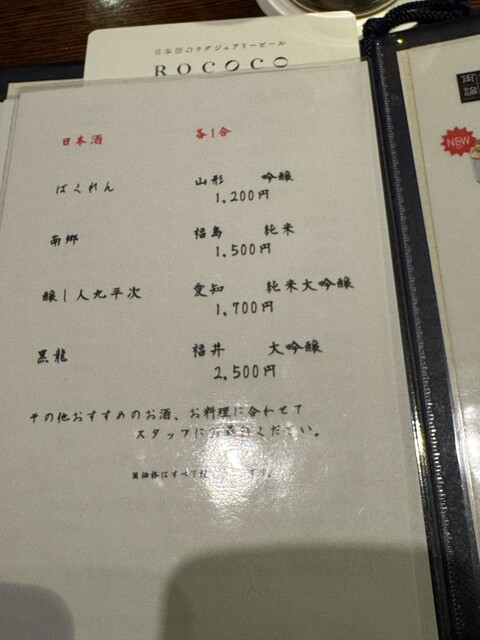 日本初のラグジュアリービール
ROCOCO
日本酒 各1合
ばくれん 山形 吟醸
1,200円
南郷 福島 純米
1,500円
醸し人九平次 愛知 純米大吟醸
1,700円
黒龍 福井 大吟醸
2,500円
その他おすすめのお酒、お料理に合わせて
スタッフにお尋ねください。
※価格はすべて
NEW